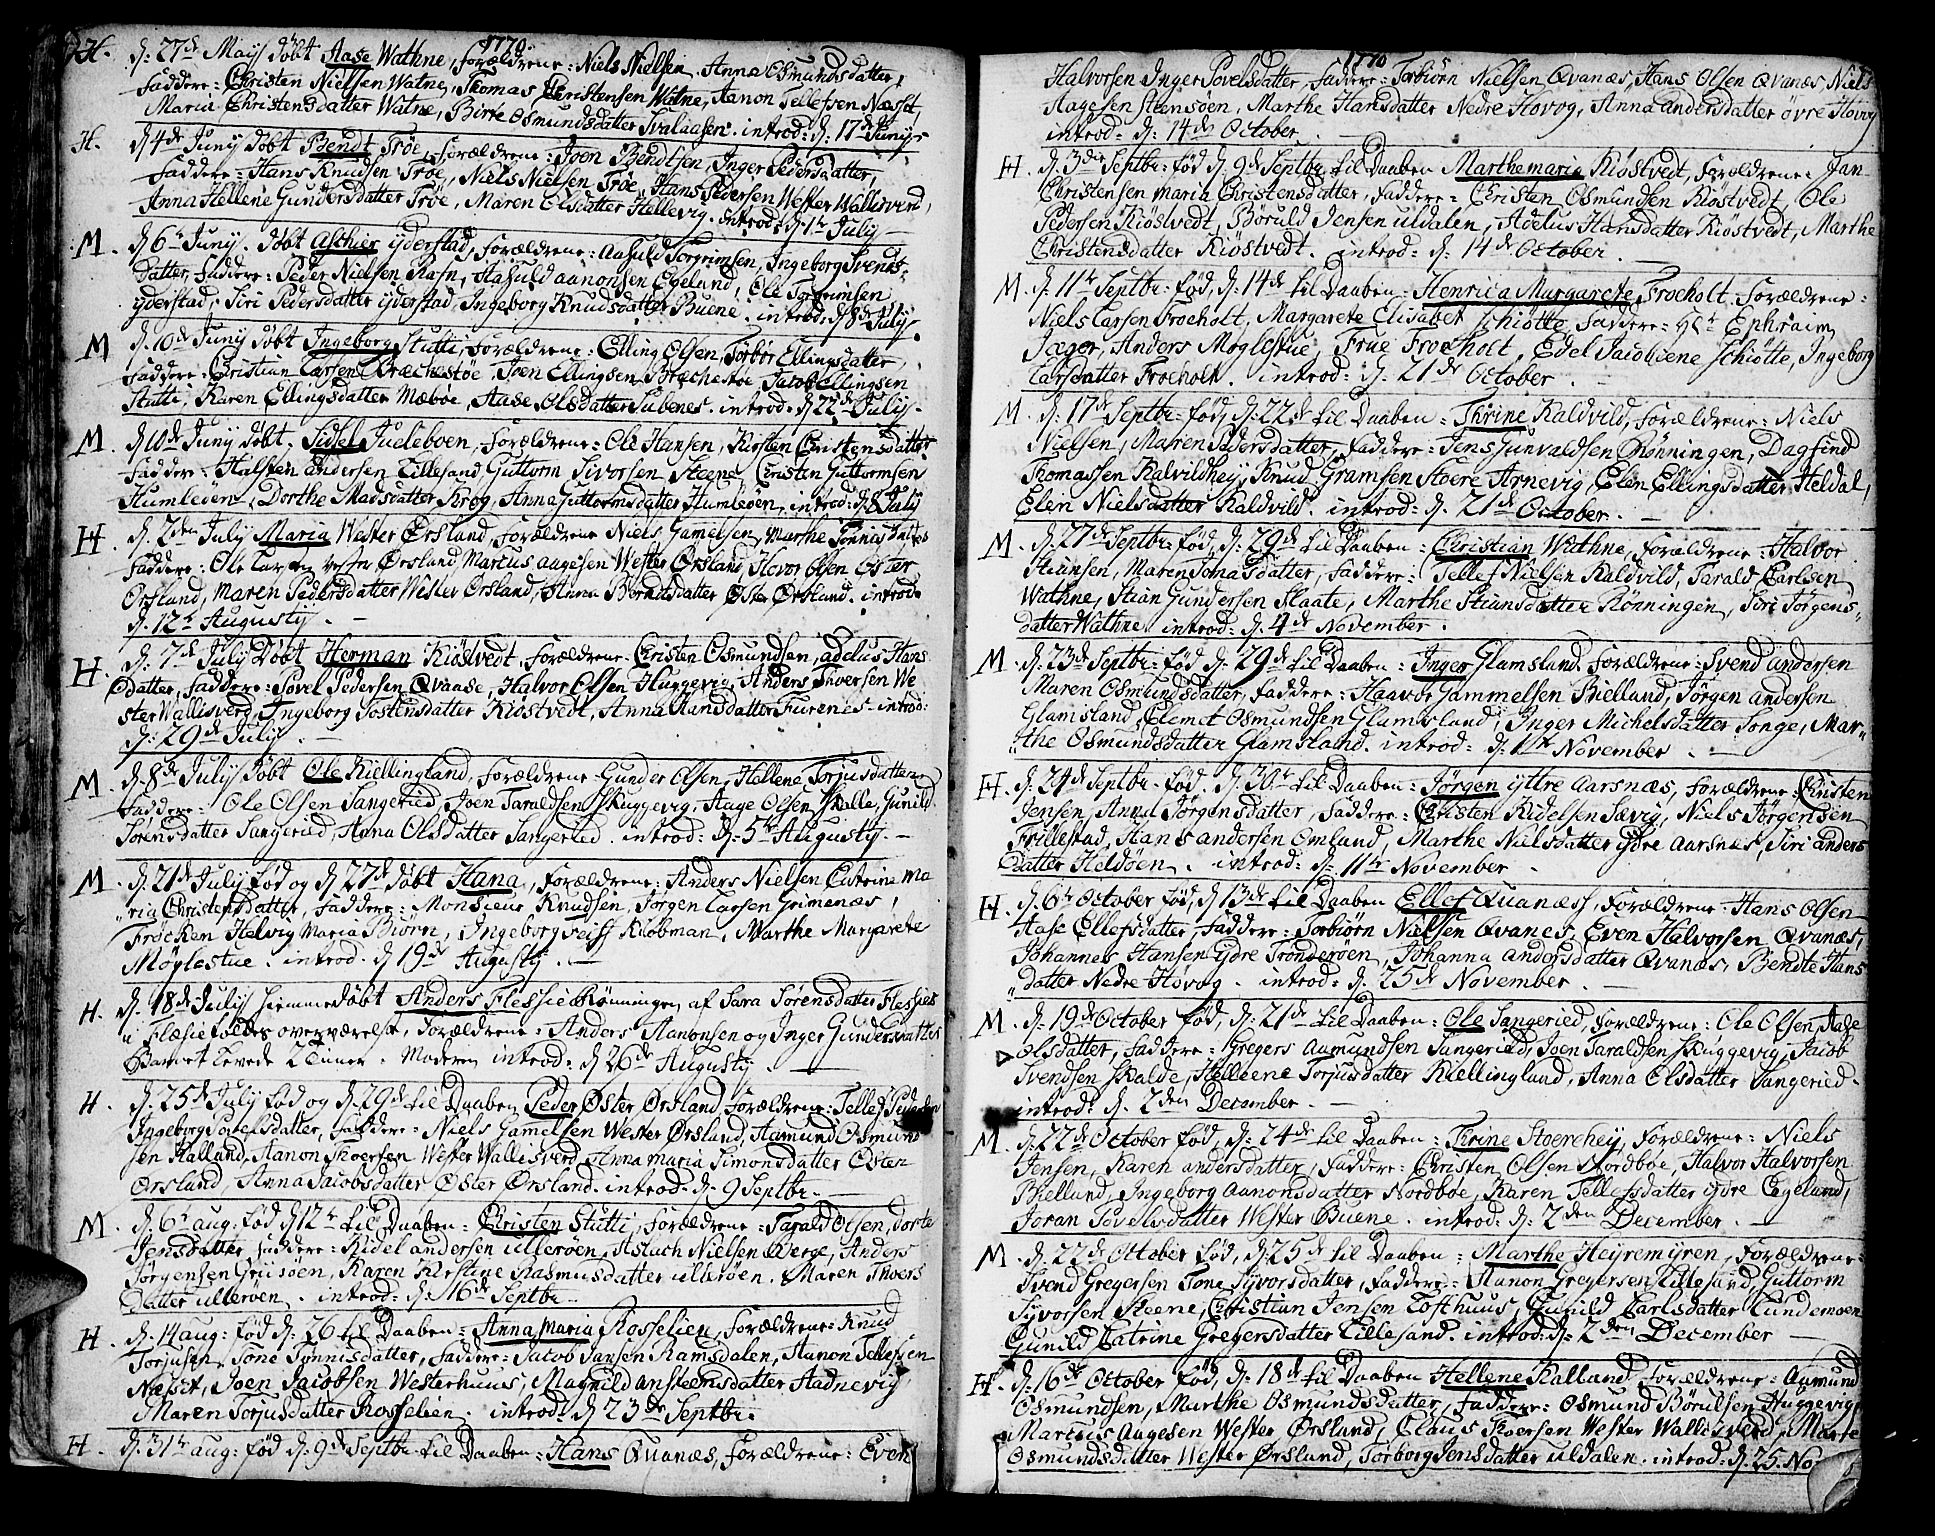 1770.
H. d. 27de Maÿ døbt Aase Wathne, forældrene: Niels Nielsen, Anna Osmundsdatter,
Faddere: Christen Nielsen Watne, Thomas Christensen Watne, Aanon Tellefsen Næsset,
Maria Christensdatter Watne, Birte Osmundsdatter Svalaasen. introd: d. 17de Junÿ.
H. d. 4de Junÿ døbt Bendt Trøe, forældrene: Joen Bendtsen, Inger Pedersdatter,
Faddere: Hans Knudsen Trøe, Niels Nielsen Trøe, Hans Pedersen Wester Wallisverd,
Anna Hellene Gundersdatter Trøe, Maren Olsdatter Hellevig. introd: d. 1te Julÿ
M. d. 6te Junÿ. døbt Aschier ÿderstad, forældrene: Aasuld Torgrimsen, Ingeborg Svends-
datter, Faddere: Peder Nielsen Rafn, Aasuld Aanonsen Egelund, Ole Torgrimsen
ÿderstad, Siri Pedersdatter ÿderstad, Ingeborg Knudsdatter Buene. introd: d. 8de Julÿ.
M d. 10de Junÿ døbt Ingeborg Stutti, forældrene: Elling Olsen, Torbør Ellingsdatter,
Faddere: Christian Larsen Bræchestøe, Joen Ellingsen Bræchestøe, Jacob Ellingsen
Stutti, Karen Ellingsdatter Mæbøe, Aase Olsdatter Subenes. introd: d. 22de Julÿ.
M. d. 10de Junÿ døbt. Sidsel Jueleboen, forældrene: Ole Hansen, Kirsten Christensdatter
Faddere: Halsten Andersen Lillesand, Guttorm Sivorsen Steene, Christen Guttormsen
Humleøen, Dorthe Madsdatter Krøg, Anna Guttormsdatter Humleøen. introd: d. 8 Julÿ
H d. 2den Julÿ Maria Wester Ørsland, forældrene Niels Gamelsen, Marthe Tønnisdatter
Faddere: Ole Larsen Vester Ørsland, Marcus Aagesen Wester Ørsland, Hovor Olsen Oster
Ørsland, Maren Pedersdatter Wester Ørsland, Anna Berntsdatter Øster Ørsland. introd:
d. 12te Augustÿ.
H. d. 7de Julÿ døbt Herman Kiøstvedt, forældrene: Christen Osmundsen, Adelus Hans
datter, Faddere: Povel Pedersen Qvaase, Halvor Olsen Huggevig, Anders Thversen We
ster Wallisverd, Ingeborg Tostensdatter Kiøstvedt, Anna Hansdatter Furenes. introd:
d. 29de Julÿ.
M d. 8de Julÿ døbt Ole Kiellingland, forældrene Gunder Olsen, Hellene Torjusdatter
Faddere: Ole Olsen Sangeried, Joen Taraldsen Skuggevig, Aage Olsen Skalle, Gunild
Sørensdatter Sangeried, Anna Olsdatter Sangeried. introd: d. 5te Augustÿ.
M. d. 21de Julÿ fød og d. 27de døbt Hana, forældrene: Anders Nielsen Catrine Ma
ria Christensdatter, Faddere: Monsieur Knudsen, Jørgen Larsen Grimenæs,
Frøcken Helvig Maria Biørn, Ingeborg Kiøbman, Marthe Margarete
Møglestue. introd: d 19de Augustÿ.
H. d. 18de Julÿ hiemmedøbt Anders Flessie Rønningen af Sara Sørensdatter Flessies
i Flæsie Eedes overværelse, forældrene: Anders Aanonsen og Inger Gundersdatter
Barnet levede 2 timer. Moderen introd: d 26de Augustÿ.
H. d. 25de Julÿ fød og d. 29de til Daaben Peder Øster Ørsland, forældrene: Tellef Pedersen
Ingeborg Tostefsdatter, Faddere: Niels Gamelsen Wester Ørsland, Aamund Osmund
sen Kalland, Aanon Thoersen Wester Wallisverd, Anna Maria Simonsdatter Østen
Ørsland, Anna Jacobsdatter Øster Ørsland. introd: d. 9 Septbr.
M. d. 6te aug: fød d. 12te til Daaben: Christen Stutti, forældrene: Tarald Olsen, dorte
Jensdatter, Faddere: Kidel andersen ulleröen, Aslach Nielsen Berge, Anders
Jørgensen Griisøen, Karen Kirstine Rasmusdatter ulleröen, Maren Thoers
datter ulleröen. introd: d. 16de Septbr.
H d. 14 aug: fød d. 26 til Daaben: Anna Maria Rosselien, forældrene: Knud
Torjusen, Tone Tønnisdatter, Faddere: Jacob Jansen Ramsdalen, Aanon Tellefsen
Næsset, Joen Jacobsen Westerhuus, Magnild Ansteensdatter Stadnevig,
Maren Torjusdatter Rosselien. introd: d 23de Septbr.
H. d. 31te aug: fød d. 9de Septbr. til Daaben: Hans Qvanæs, forældrene: Even
1770
Halvorsen Inger Povelsdatter, Faddere: Torbiörn Nielsen Qvanæs, Hans Olsen Qvanæs, Niels
Aagesen Steensøen, Marthe Hansdatter Nedre Hovog, Anna Andersdatter øvre Hovog
introd: d: 14de October.
H. d. 3die Septbr: fød d. 9de Septbr: til Daaben Marthemaria Kiøstvedt, forældrene: Jan
Christensen Maria Christensdatter, Faddere: Christen Osmundsen Kiøstvedt, Ole
Pedersen Kiøstvedt, Børuld Jensen uldalen, Adelus Hansdatter Kiøstvedt, Marthe
Christensdatter Kiøstvedt. introd: d. 14de October.
M d. 11te Septbr: fød, d: 14de til Daaben: Henrica Margarete Froeholt. forældrene:
Niels Carsen Froeholt, Margarete Elisabet Schiøtte, Faddere: Hr Ephraim
Jæger, Anders Møglestue, Frue Froeholt, Edel Jacobiene Schiøtte, Ingeborg
Carsdatter Froeholt. introd: d. 21de October.
M d: 17de Septbr: fød, d: 22de til Daaben: Thrine Kaldvild, forældrene: Niels
Nielsen, Maren Pedersdatter, Faddere: Jens Junvaldsen Rønningen, Dagfind
Thomassen Kalvildhey, Knud Gramsen Stoere Arnevig, Elen Ellingsdatter Heldal,
Elen Nielsdatter Kaldvild. introd: d. 21de October.
M. d. 27de Septbr: fød, d: 29de til Daaben: Christian Wathne, forældrene: Halvor
Hansen, Maren Jonasdatter, Faddere: Tellef Nielsen Kaldvild, Tarald Carlsen
Wathne, Stian Gundersen Slaate, Marthe Stiansdatter Rönningen, Siri Jörgens-
datter Wathne. introd: d. 4de November.
M. d: 23de Septbr: fød d: 29de til Daaben: Inger Glamsland. forældrene: Svend Andersen
Maren Osmundsdatter, Faddere: Haavor Gammelsen Bielland, Jørgen Andersen
Glamsland, Clemet Osmundsen Glamsland, Inger Michelsdatter Tonge, Mar-
the Osmundsdatter Glamsland. introd: d. 11te November.
H. d: 24de Septbr. fød. d. 30te til Daaben: Jörgen ÿttre Aarsnæs, forældrene: Christen
Jensen, Anna Jørgensdatter, Faddere: Christen Kidelsen Sævig, Niels Jørgensen
Frillestad, Hans andersen Omlund, Marthe Nielsdatter ÿdre Aarsnæs, Siri anders
datter Heldøen. introd: d: 11te November.
H. d. 6te October fød, d. 13de til Daaben Ellef Qvanæss, forældrene: Hans Olsen
Aase Ellefsdatter, Faddere: Torbiörn Nielsen Qvanes, Even Halvorsen Qvanæs,
Johannes Hansen ÿdre Trønderøen, Johanna Andersdatter Qvanæs, Bendte Hans
datter Nedre Høvog. introd: d. 25de November.
M. d: 19de October fød, d. 21de til Daaben: Ole Sangeried, forældrene: Ole Olsen, Aage
Olsdatter, Faddere: Gregers Aamundsen Sangeried, Joen Taraldsen Skuggevig, Jacob
Svendsen Skalde, Helleene Torjusdatter Kiellingland, Anna Olsdatter Sangeried.
introd: d. 2den December.
M. d: 22de October fød, d: 24de til Daaben: Thrine Stoerehey, forældrene: Niels
Jensen, Karen andersdatter, Faddere: Christen Olsen Nordbøe, Halvor Halvorsen
Bielland, Ingeborg Aanonsdatter Nordbøe, Karen Tellefsdatter ÿdre Egeland,
Joran Povelsdatter Wester Buene. introd: d: 2den December.
M d: 22de October fød, d: 25de til Daaben: Marthe Heyremÿren, forældrene:
Svend Gregersen Tone Syvorsdatter, Faddere: Aanon Gregersen Lillesand, Guttorm
Syvorsen Steene, Christian Jensen Tofthuus, Gunild Carlsdatter Lundemoen
Gunild Catrine Gregersdatter Lillesand. introd: d: 2den December
H. d: 16de October fød, d: 18de til Daaben Hellene Kalland, forældrene: Aamund
Osmundsen, Marthe Osmundsdatter, Faddere: Osmund Børulsen Huggevig,
Marcus Augesen Wester Ørsland, Claus Thoersen Wester Wallisverd, Marte
Osmundsdatter Wester Ørsland, Torborg Jensdatter uldalen. introd: d. 25. No